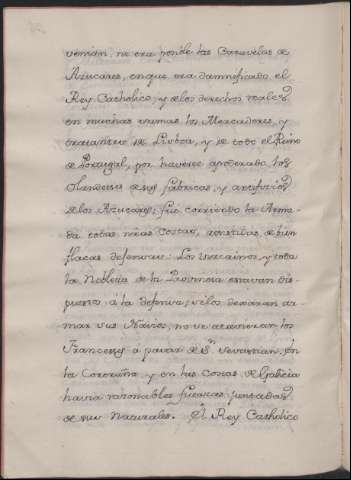 venian, ni era posible las Caravelas de
Azucares, en que era damnificado el
Rey Catholico, y de los derechos reales,
en muchas sumas los Mercaderes, y
de Lisboa, y de todo el Reino
de Portugal, por haverse apoderado los
Olandeses de sus fabricas, y artificios
de los Azucares; fue corriendo la Arma-
da todas n̄ras Costas, de bien
flacas defensas. Los Viscainos, y toda
la Nobleza de la Provincia estavan dis-
puestos á la defensa; si los dexaran ar-
mar sus Navios, no se atrevieran los
Franceses á pasar de Sn. Sevastian, en
la Coruruña, y en las Costas de Galicia
havia razonables fuerzas juntadas
de sus Naturales. El Rey Catholico